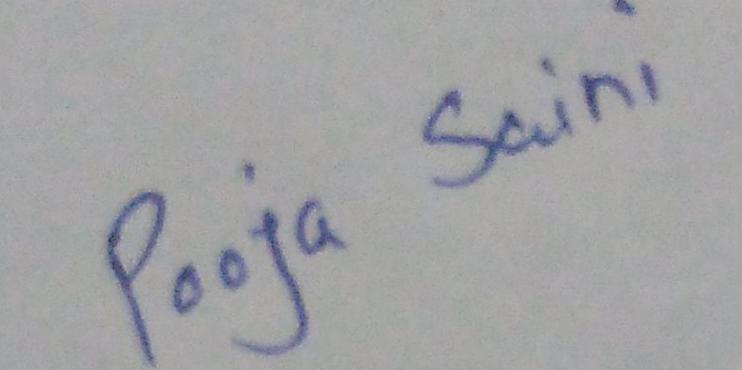 Pooja Saini